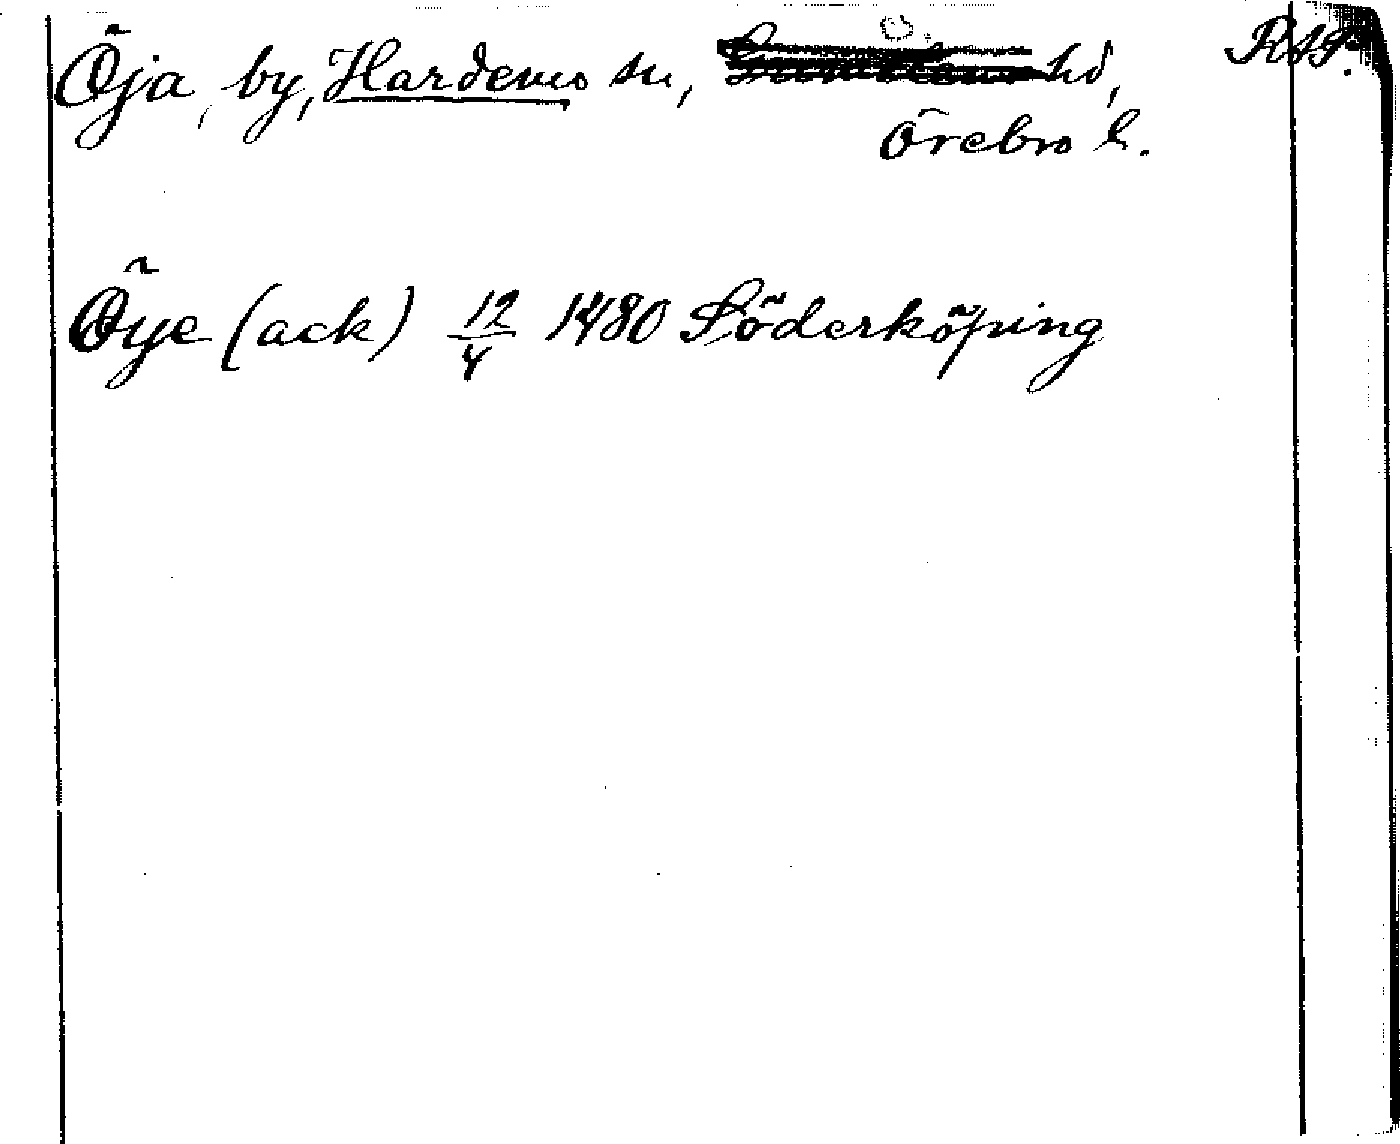 Öja, by, Hardemo sn, hd, RAP.
Örebro l.
Öye (ack) 12/4 1480 Söderköping